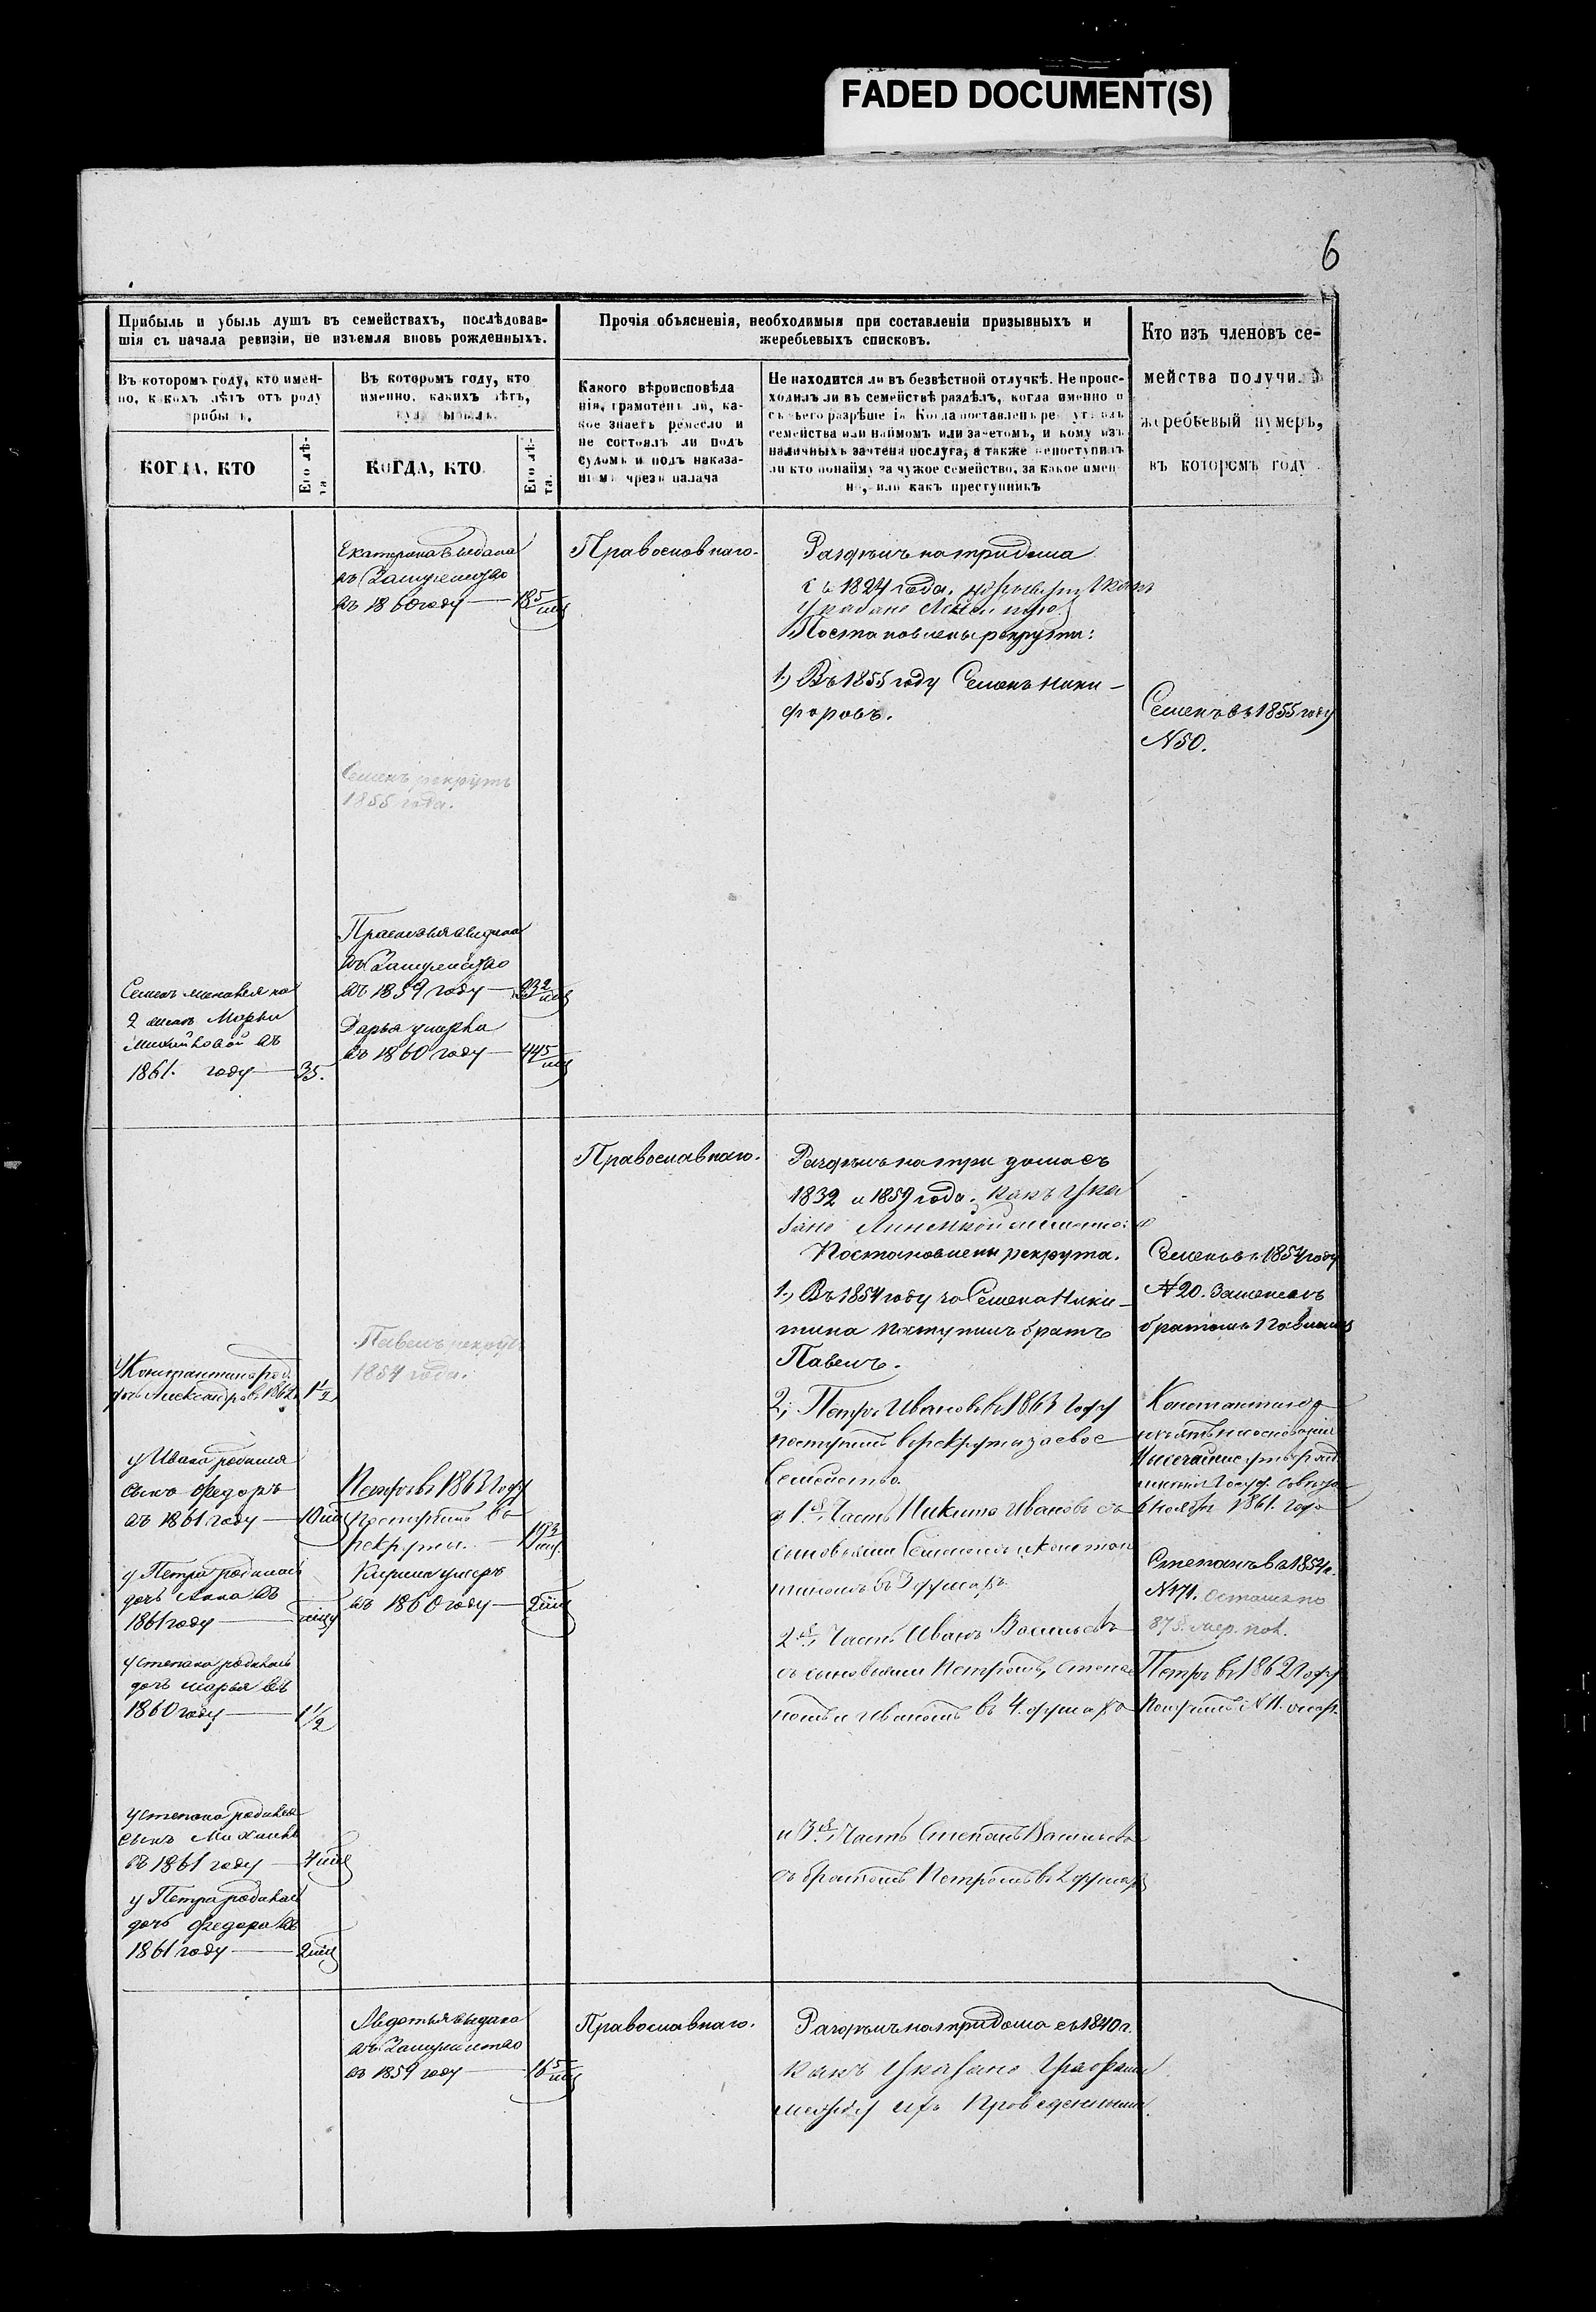 FADED DOCUMENT(S)
6
Прибыль и убыль душъ въ семействахъ, послѣдовав-
шія съ начала ревизіи, не изъемля вновь рожденныхъ.
Прочія объясненія, необходимыя при составленіи призывныхъ и
жеребьевыхъ списковъ.
Кто изъ членовъ се-
мейства получилъ
жеребьевый нумеръ,
въ которомъ году
Въ которомъ году, кто имен-
но, какихъ лѣтъ отъ роду
прибылъ.
Въ которомъ году, кто
именно, какихъ лѣтъ,
куда выбылъ.
Какого вѣроисповѣда
нія, грамотенъ ли, ка-
кое знаетъ ремесло и
не состоялъ ли подъ
судомъ и подъ наказа-
ніемъ чрезъ палача
Не находится ли въ безвѣстной отлучкѣ. Не проис-
ходилъ ли въ семействѣ раздѣлъ, когда именно и
съ чьего разрѣшенія. Когда поставленъ рекрутъ изъ
семейства или наймомъ или зачетомъ, и кому изъ
наличныхъ зачтена послуга, а также не поступилъ
ли кто по найму за чужое семейство, за какое имен
но, или какъ преступникъ
КОГДА, КТО
Его лѣ-
та.
КОГДА, КТО
Его лѣ-
та.
Екатерина выдана
въ Замужество
въ 1860 году — 18 5/мц
Православнаго.
Раздѣлъ на три дома
съ 1824 года.
Поставлены рекруты:
1) Въ 1855 году Семенъ Ники-
форовъ.
Семенъ въ 1855 году
N 50.
Семенъ рекрутъ
1855 года.
Прасковья выдана
въ Замужество
въ 1859 году —
Дарья умерла
въ 1860 году — 44 5/мц
Семенъ
2 Марьи
въ
1861. году — 35.
Православнаго.
Раздѣлъ на три дома съ
1832 и 1859 года. Какъ Ука
зано
Поставлены рекрута.
1) Въ 1854 году за Семена Ники-
тина поступилъ братъ
Павелъ.
2, Петръ Ивановъ въ 1863 году
поступилъ въ рекруты за свое
Семейство.
1я Часть Никита Ивановъ съ
сыновьями Семеномъ и Констан
тиномъ въ 3 душахъ
2я Часть Иванъ Васильевъ
съ сыновьями Петромъ, Степа
номъ и Иваномъ въ 4 душахъ
и 3я Часть Степанъ Васильевъ
съ братомъ Петромъ въ 2 душахъ
Семенъ въ 1854 году
N 20. Замененъ
братомъ Павломъ
Константинъ
изъятъ на основаніи
Высочайше утвержд.
мнѣнія Госуд. Совѣта
6 Ноябр. 1861. года
Степанъ въ 1854 г.
N 171.
Петръ въ 1862 году
N 11.
Павелъ рекрутъ
1854 года.
У Константина род.
дочь Александра въ 1862 г. 1 1/2
у Ивана родился
сынъ Федоръ
въ 1861 году — 10 мц
у Петра родилась
дочь Анна въ
1861 году —
у Степана родилась
дочь Марья въ
1860 году — 1 1/2
у Степана родился
сынъ Михаилъ
въ 1861 году — 4 мц
у Петра родилась
дочь Федора въ
1861 году — 2 мц
Петръ въ 1863 году
поступилъ въ
рекруты. — 19 3/мц
Кирила умеръ
въ 1860 году — 2 мц
Авдотья выдана
въ Замужество
въ 1859 году — 16 5/мц
Православнаго.
Раздѣлъ на три дома съ 1840 г.
Какъ Указано
между ихъ проведенными